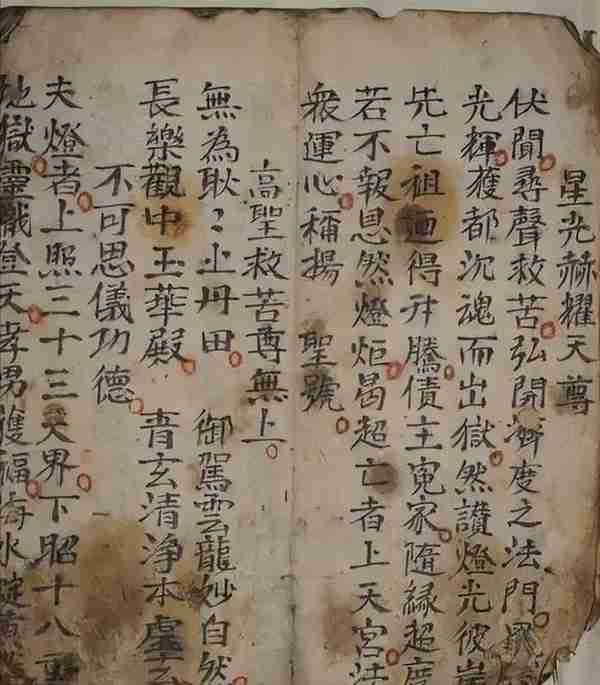 星光赫耀天尊
伏聞尋聲救苦弘開濟度之法門
光輝獲都沉魂而出獄然讚燈光彼岸
先亡祖逈得升騰債主冤家隨緣超度
若不報恩然燈炬曷超亡者上天宮法
衆運心稱揚 聖號
高聖救苦尊無上
無為耿〻止丹田 御駕雲龍妙自然
長樂觀中玉華殿 杳玄清淨本虛玄
不可思儀功德
夫燈者上照三十三天界下昭十八重
地獄靈儀登天孝男獲福海水